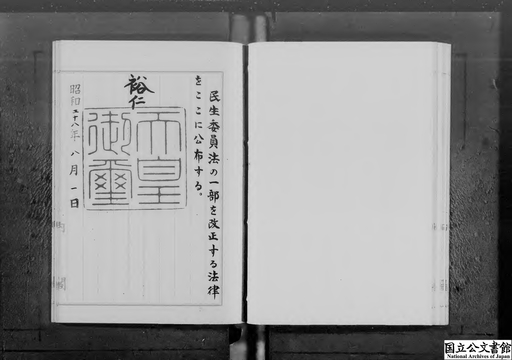 民生委員法の一部を改正する法律
をここに公布する。
裕仁
天皇
御璽
昭和二十八年八月一日
国立公文書館
National Archives of Japan